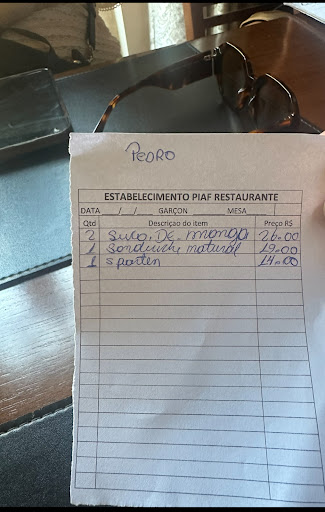 PEDRO
ESTABELECIMENTO PIAF RESTAURANTE
DATA / / GARÇON MESA
Qtd Descriçao do item Preço R$
2 Suco. DE. manga 26.00
1 Sanduiche natural 19.00
1 sparten 14.00